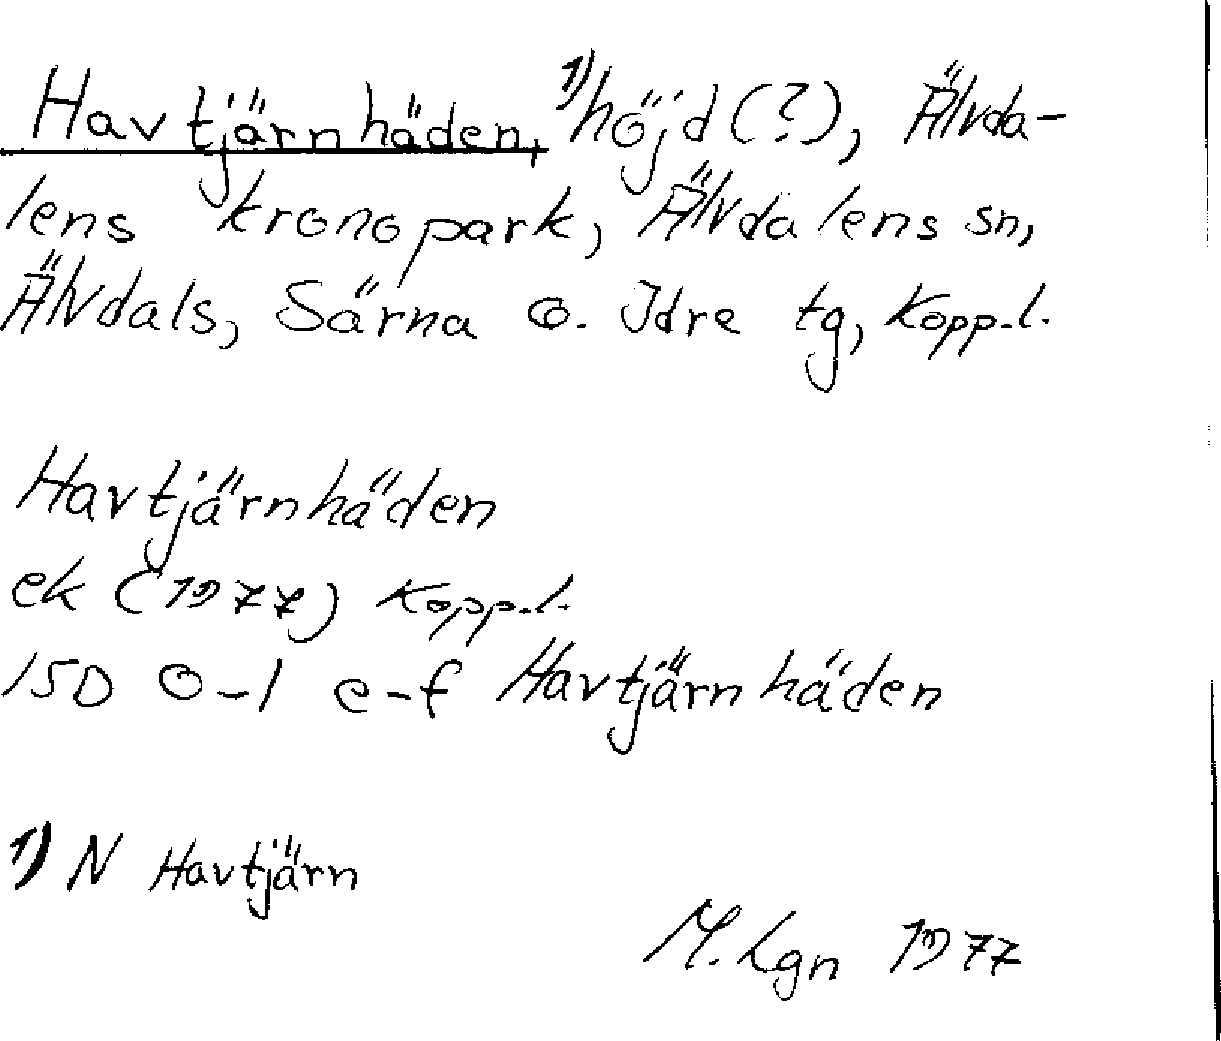 Havtjärnhäden, 1) höjd (?), Älvda-
lens kronopark, Älvdalens sn,
Älvdals, Särna o. Idre tg, Kopp.l.
Havtjärnhäden
ek (1977) Kopp.l.
15D 0-1 e-f Havtjärnhäden
1) N Havtjärn
M. Lgn 1977